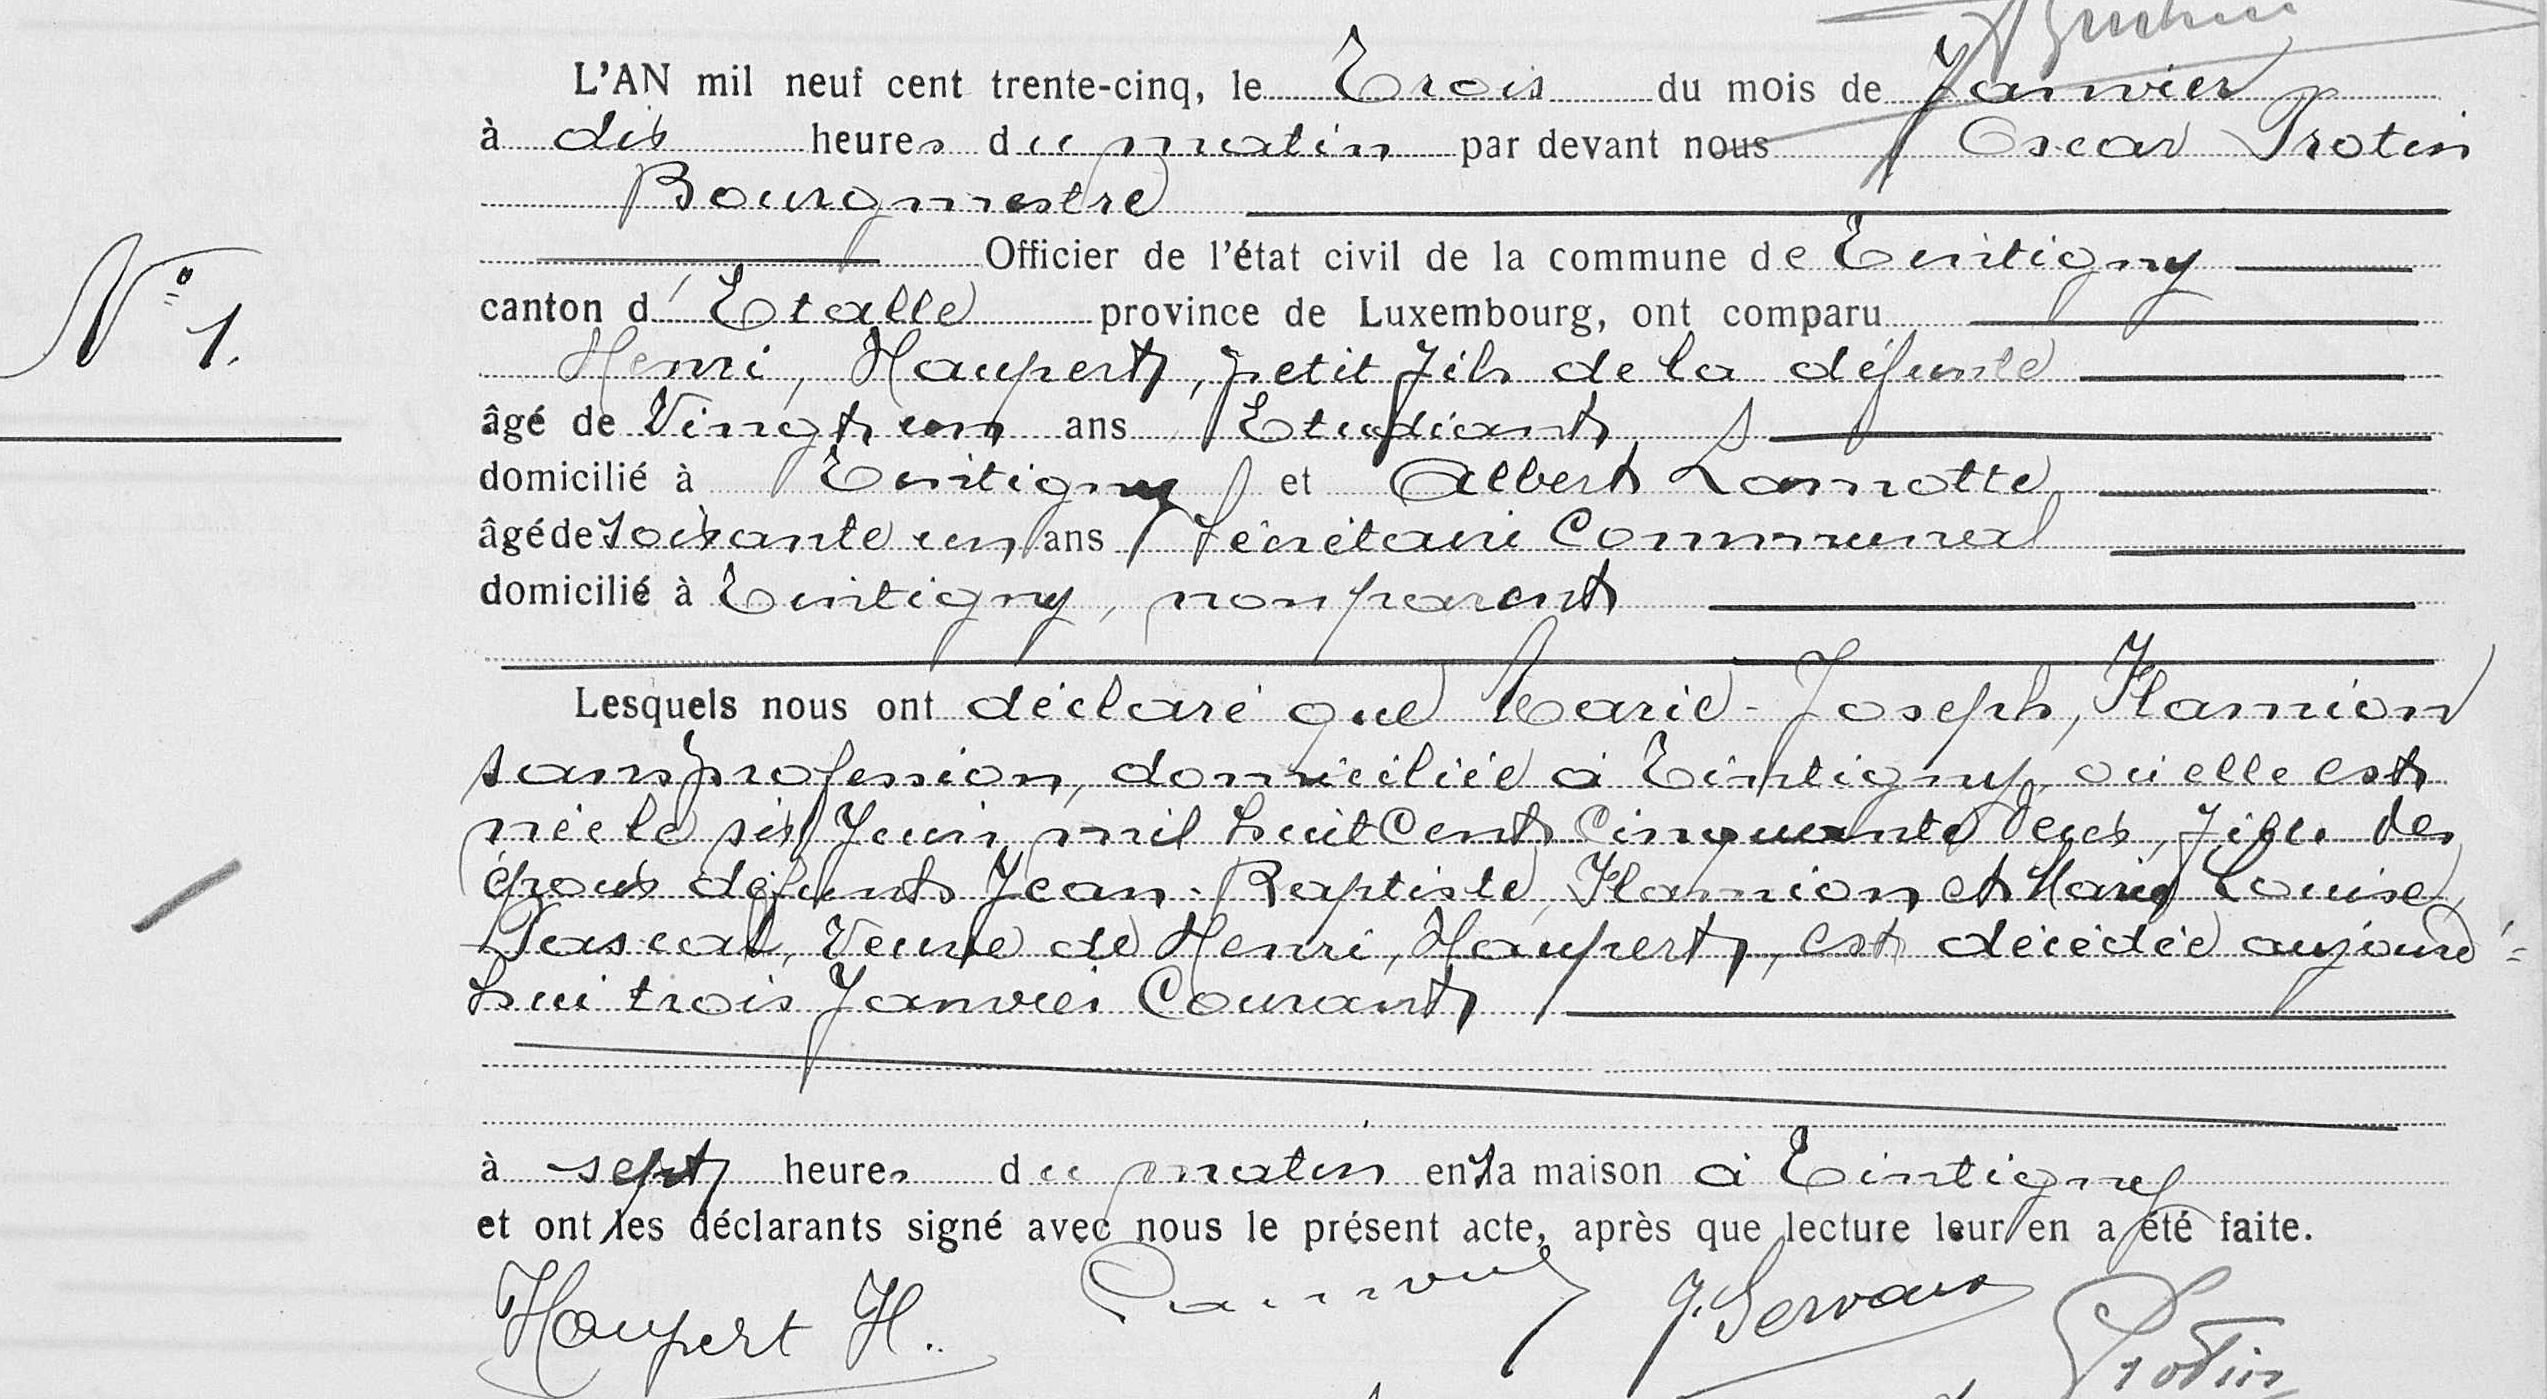 L'AN mil neuf cent trente-cinq, le Trois du mois de Janvier
à dix heures du matin par devant nous Oscar Protin
Bourgmestre
Officier de l'état civil de la commune de Tintigny
N° 1.
canton d'Etalle province de Luxembourg, ont comparu
Henri, Haupert, petit fils de la défunte
âgé de Vingt un ans Etudiant
domicilié à Tintigny et Albert Lamotte
âgé de soixante un ans Secrétaire Communal
domicilié à Tintigny, non parent
Lesquels nous ont déclaré que Marie-Joseph, Flamion
sans profession, domiciliée à Tintigny, où elle est
née le six Juin mil huit Cent Cinquante deux, fille des
époux défunts Jean-Baptiste, Flamion et Marie Louise,
Pascal, Veuve de Henri, Haupert, est décédée aujourd'=
hui trois Janvier Courant
à sept heures du matin en sa maison à Tintigny
et ont les déclarants signé avec nous le présent acte, après que lecture leur en a été faite.
Haupert H. J. Servais Protin